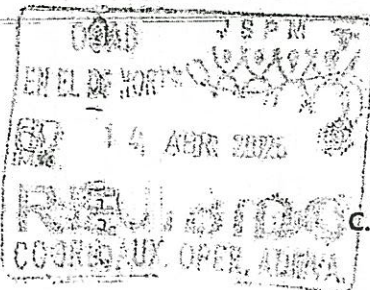 OOAD J S P M
EN EL DF NORTE
14 ABR 2025
RECIBIDO
C.
COORD. AUX. OPER. ADMVA.